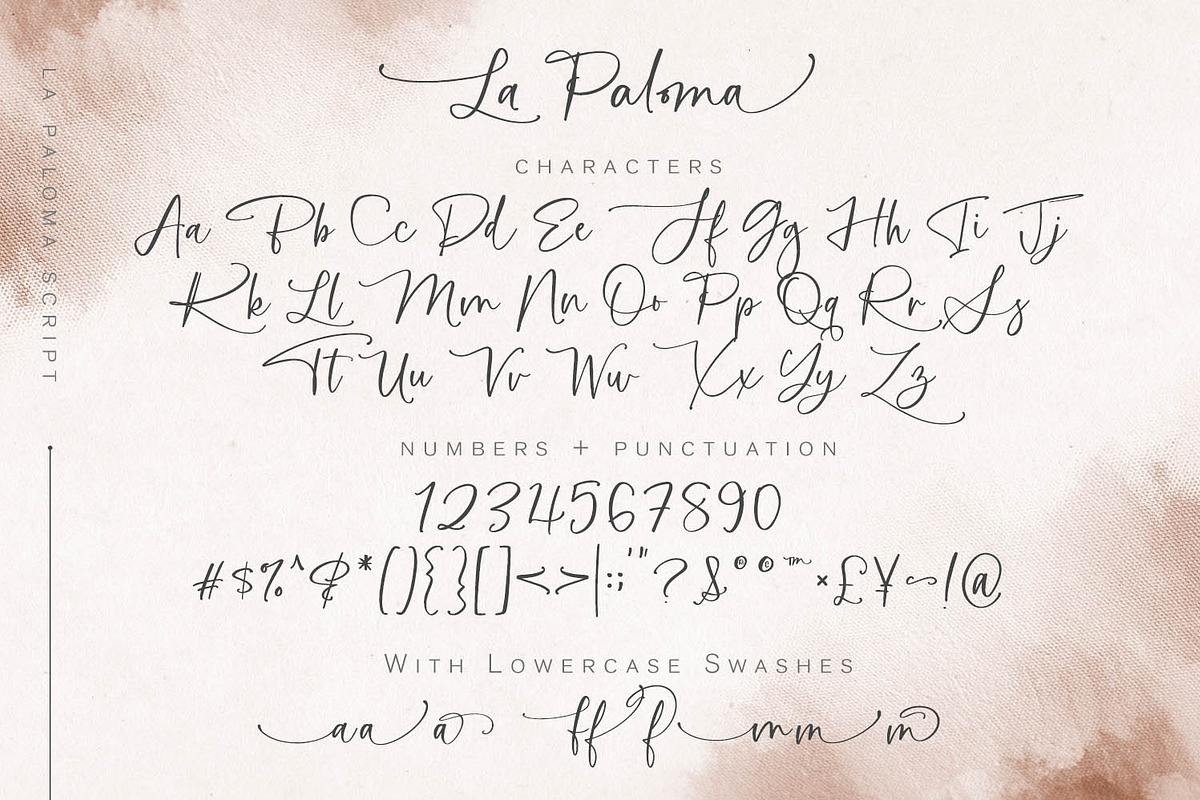 La Paloma
LA PALOMA SCRIPT
CHARACTERS
Aa Bb Cc Dd Ee Ff Gg Hh Ii Jj
Kk Ll Mm Nn Oo Pp Qq Rr Ss
Tt Uu Vv Ww Xx Yy Zz
NUMBERS + PUNCTUATION
1234567890
#$%^¢*(){}[]<>|:;'"?&®©™×£¥~!@
WITH LOWERCASE SWASHES
aa a ff f mm m